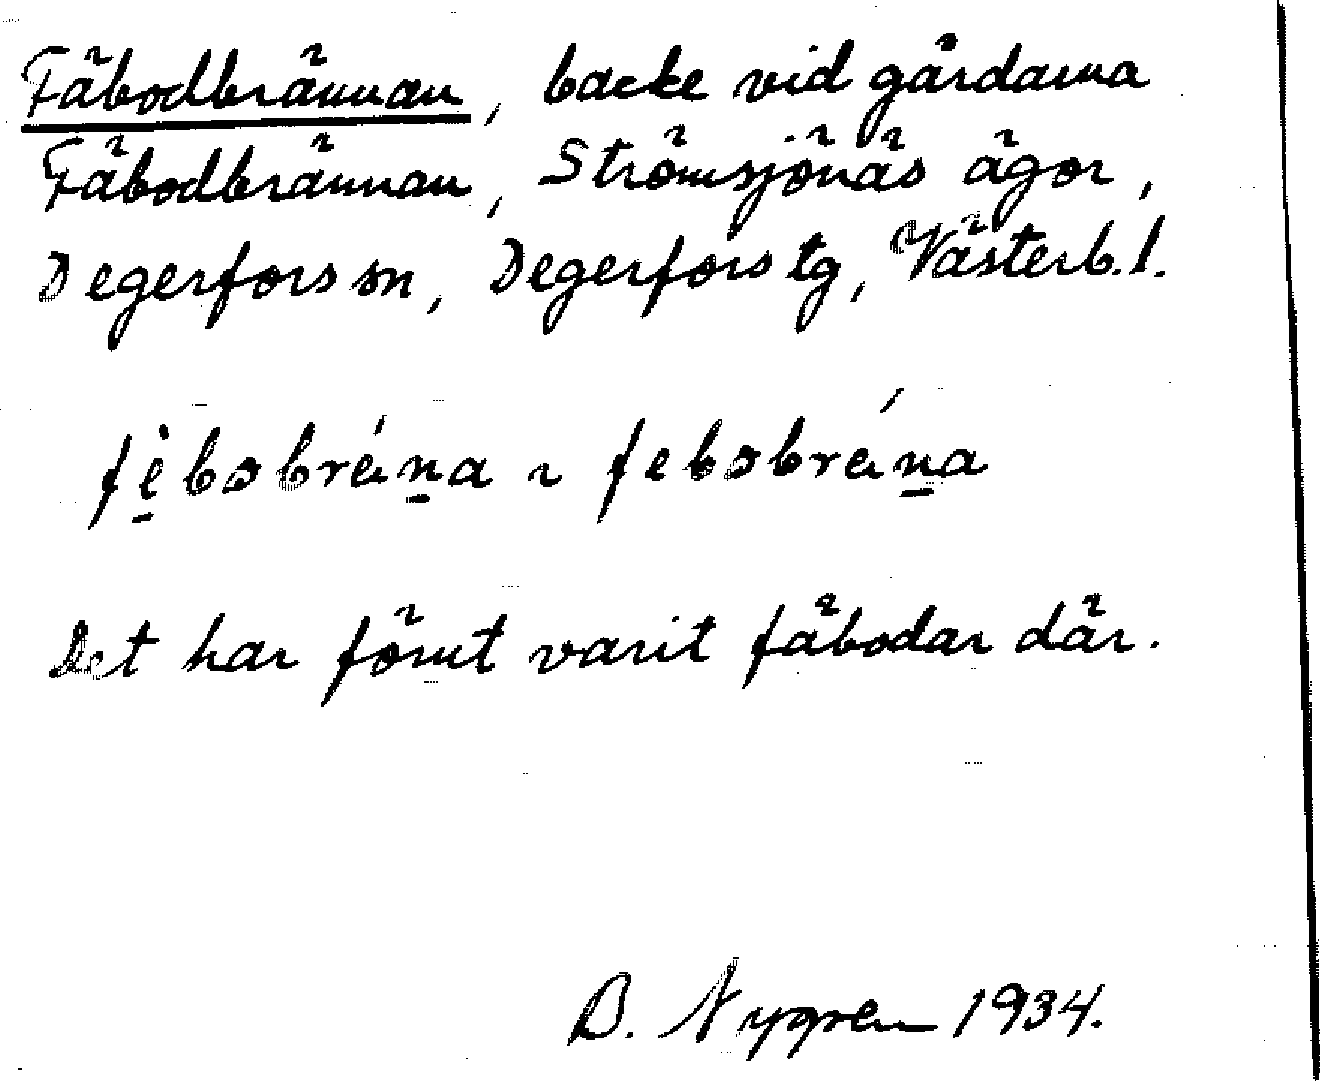 Fäbodbrännan, backe vid gårdarna
Fäbodbrännan, Strömsjönäs ägor,
Degerfors sn, Degerfors tg, Västerb. l.
fè̱bobrén̲a ~ febobrén̲a
Det har förut varit fäbodar där.
B. Nygren 1934.